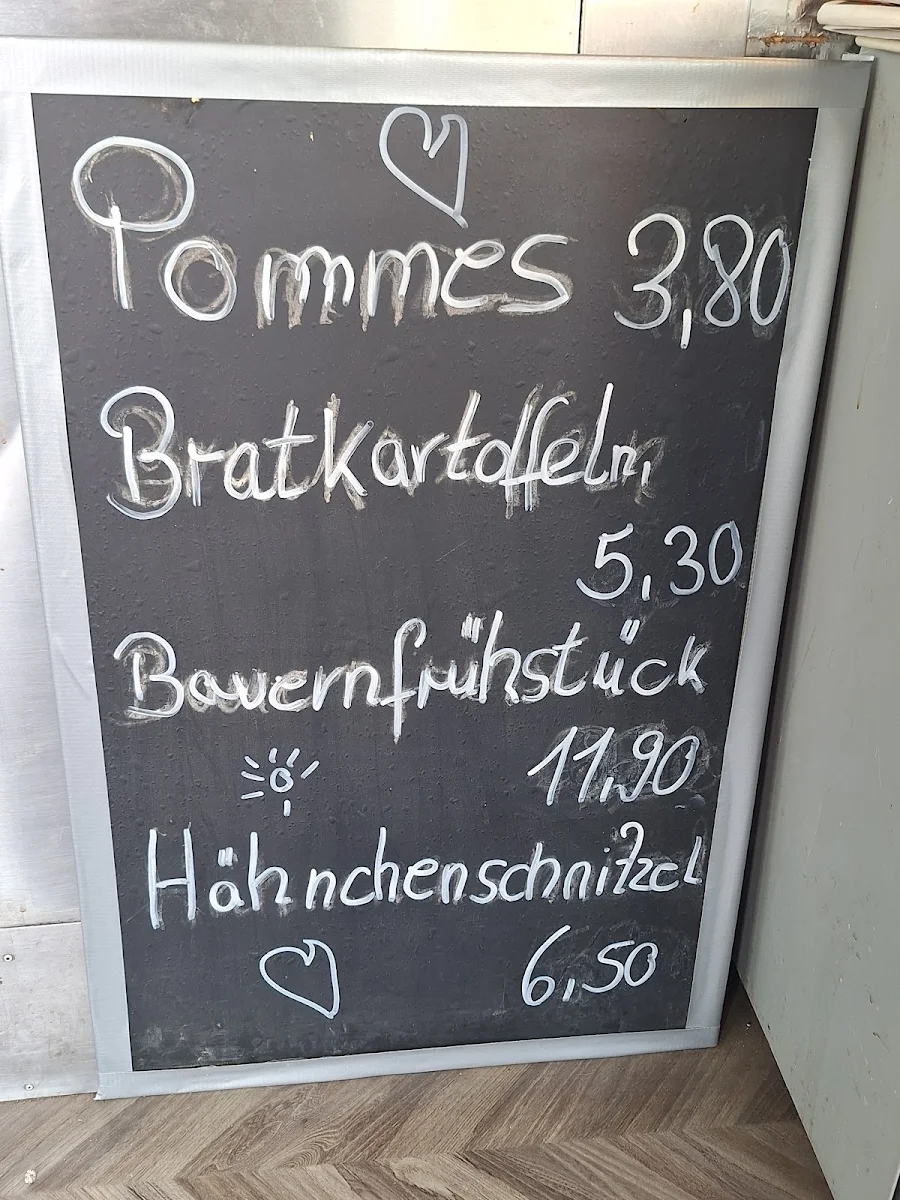 Pommes 3,80
Bratkartoffeln
5,30
Bauernfrühstück
11,90
Hähnchenschnitzel
6,50